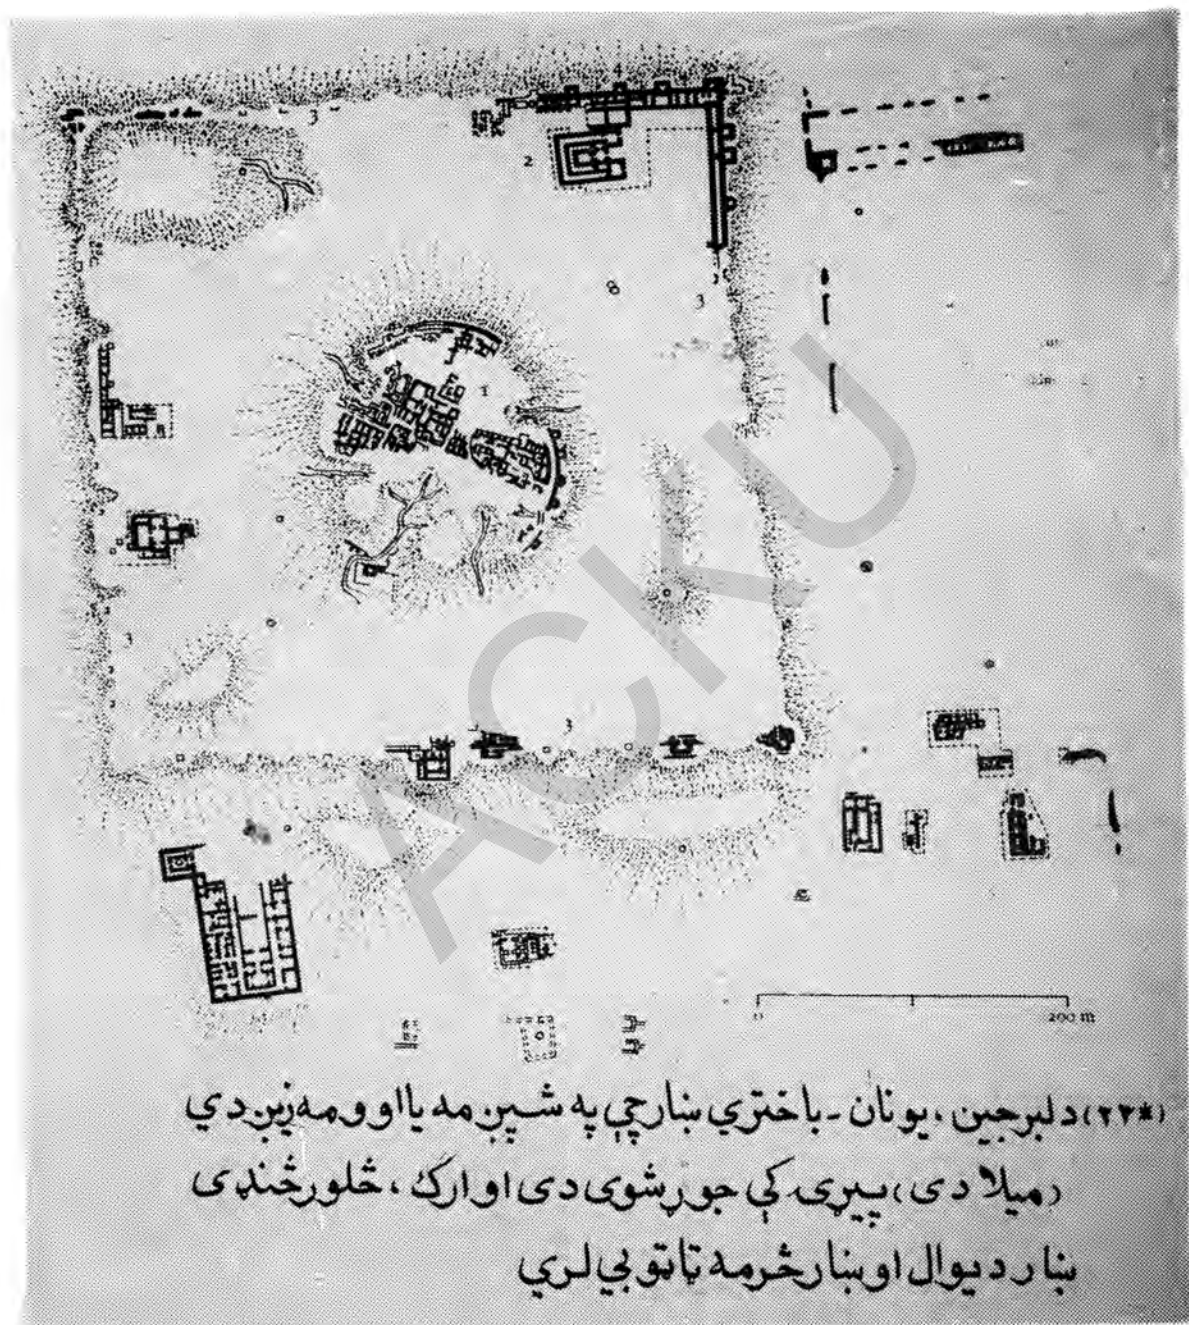 3
2
3
1
3
3
0 200 m
ACKU
(*۲۳) دلبرجین، یونان - باختري ښار چې په شپږمه یا اوومه زېږدي
(میلادی) پېړۍ کې جوړ شوی دی او ارګ، څلور څنډی
ښار دېوال او ښار څرمه تاټوبي لري